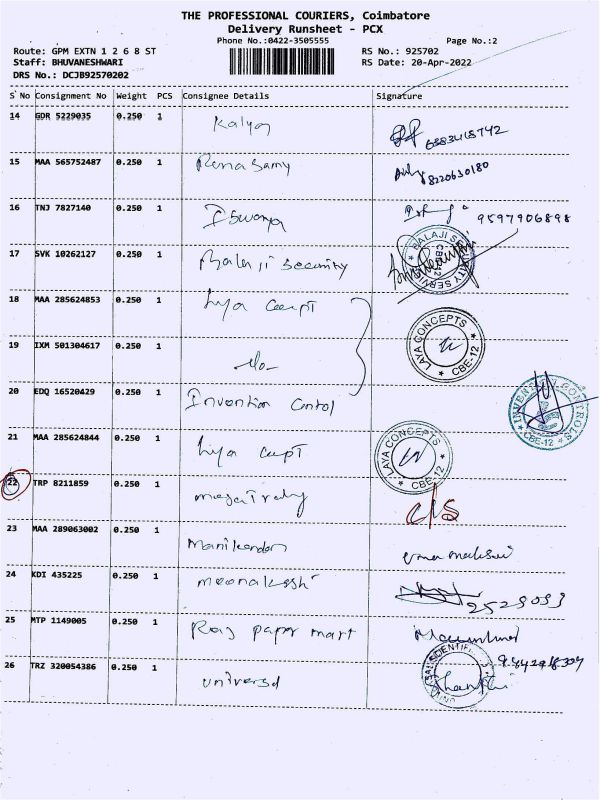 THE PROFESSIONAL COURIERS, Coimbatore
Delivery Runsheet - PCX
Phone No.:0422-3505555
Page No.:2
Route: GPM EXTN 1 2 6 8 ST
RS No.: 925702
Staff: BHUVANESHWARI
RS Date: 20-Apr-2022
DRS No.: DCJB92570202
S No Consignment No Weight PCS Consignee Details Signature
14 GDR 5229035 0.250 1 Kalyan
15 MAA 565752487 0.250 1 Renasamy 8220630180
16 TNJ 7827140 0.250 1 Iswarya 9597906898
17 SVK 10262127 0.250 1 Balaji Security BALAJI SECURITY SERVICES CBE-12
18 MAA 285624853 0.250 1 Laya Concept
19 IXM 501304617 0.250 1 -do- LAYA CONCEPTS CBE-12
20 EDQ 16520429 0.250 1 Invention Control INVENTION CONTROLS CBE-12
21 MAA 285624844 0.250 1 Laya LAYA CONCEPTS CBE-12
22 TRP 8211859 0.250 1 c/s
23 MAA 289063002 0.250 1 Manikandan
24 KDI 435225 0.250 1 Meenakshi 2529093
25 MTP 1149005 0.250 1 Raj paper mart
26 TRZ 320054386 0.250 1 Universal SCIENTIFIC